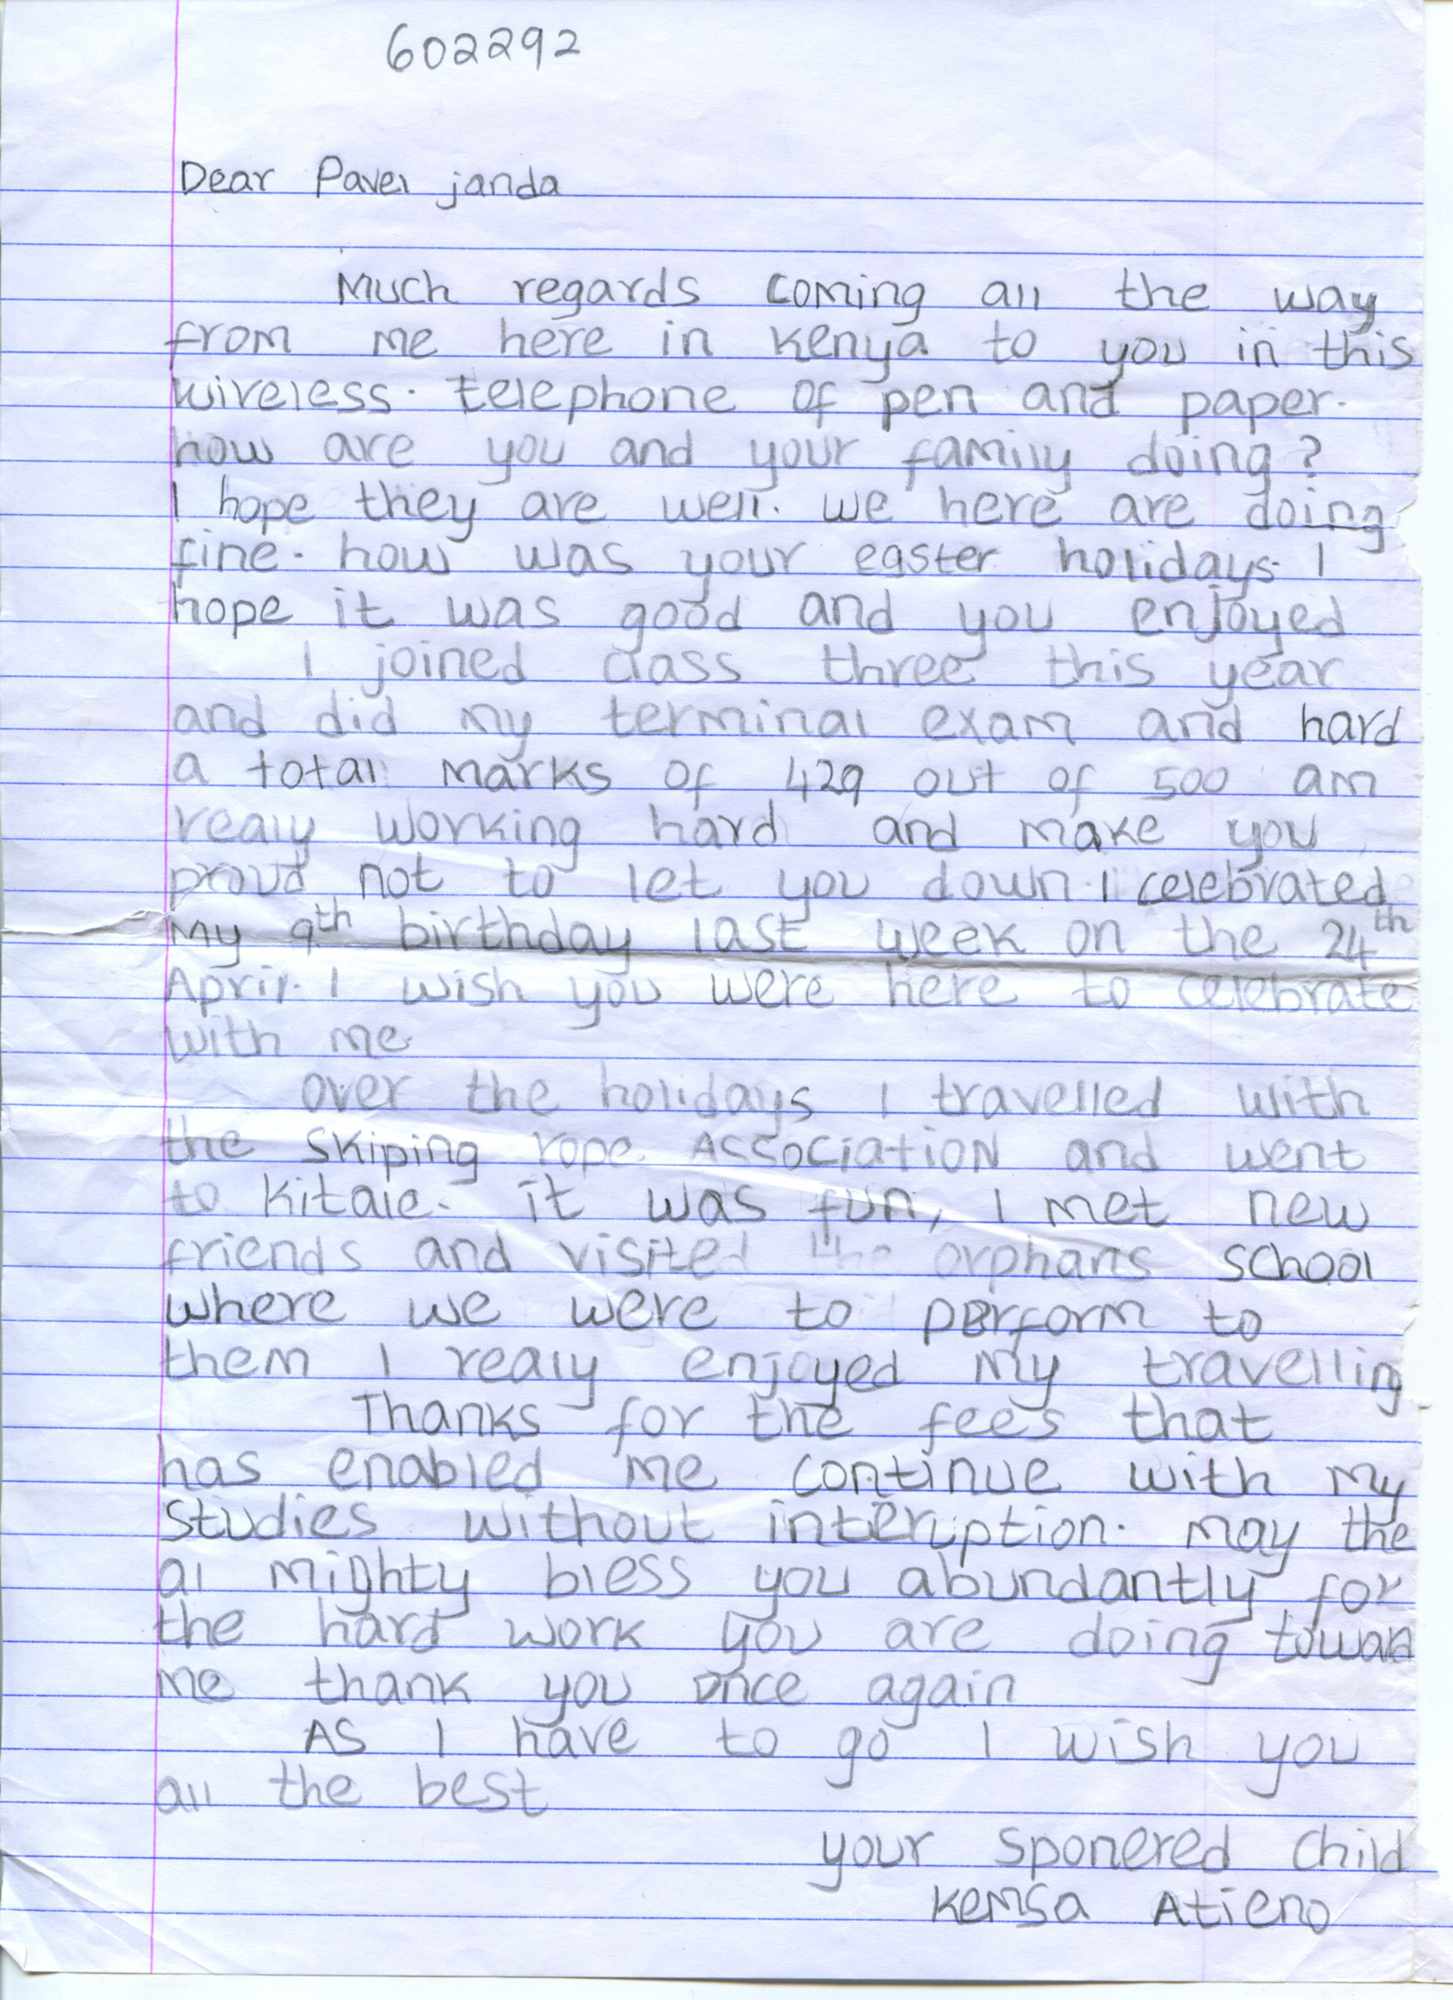 602292
Dear Pavel janda
Much regards coming all the way
from me here in kenya to you in this
wireless. telephone of pen and paper.
how are you and your family doing?
I hope they are well. we here are doing
fine. how was your easter holidays. I
hope it was good and you enjoyed
I joined class three this year
and did my terminal exam and hard
a total marks of 429 out of 500 am
realy working hard and make you
proud not to let you down. I celebrated
my 9th birthday last week on the 24th
April. I wish you were here to celebrate
with me.
over the holidays I travelled with
the skiping rope ASSOCIATION and went
to kitale. it was fun, I met new
friends and visited the orphans school
where we were to perform to
them I realy enjoyed my travelling
Thanks for the fees that
has enabled me continue with my
studies without interuption. may the
al mighty bless you abundantly for
the hard work you are doing toward
me thank you once again
AS I have to go I wish you
all the best
your sponered child
kemsa Atieno